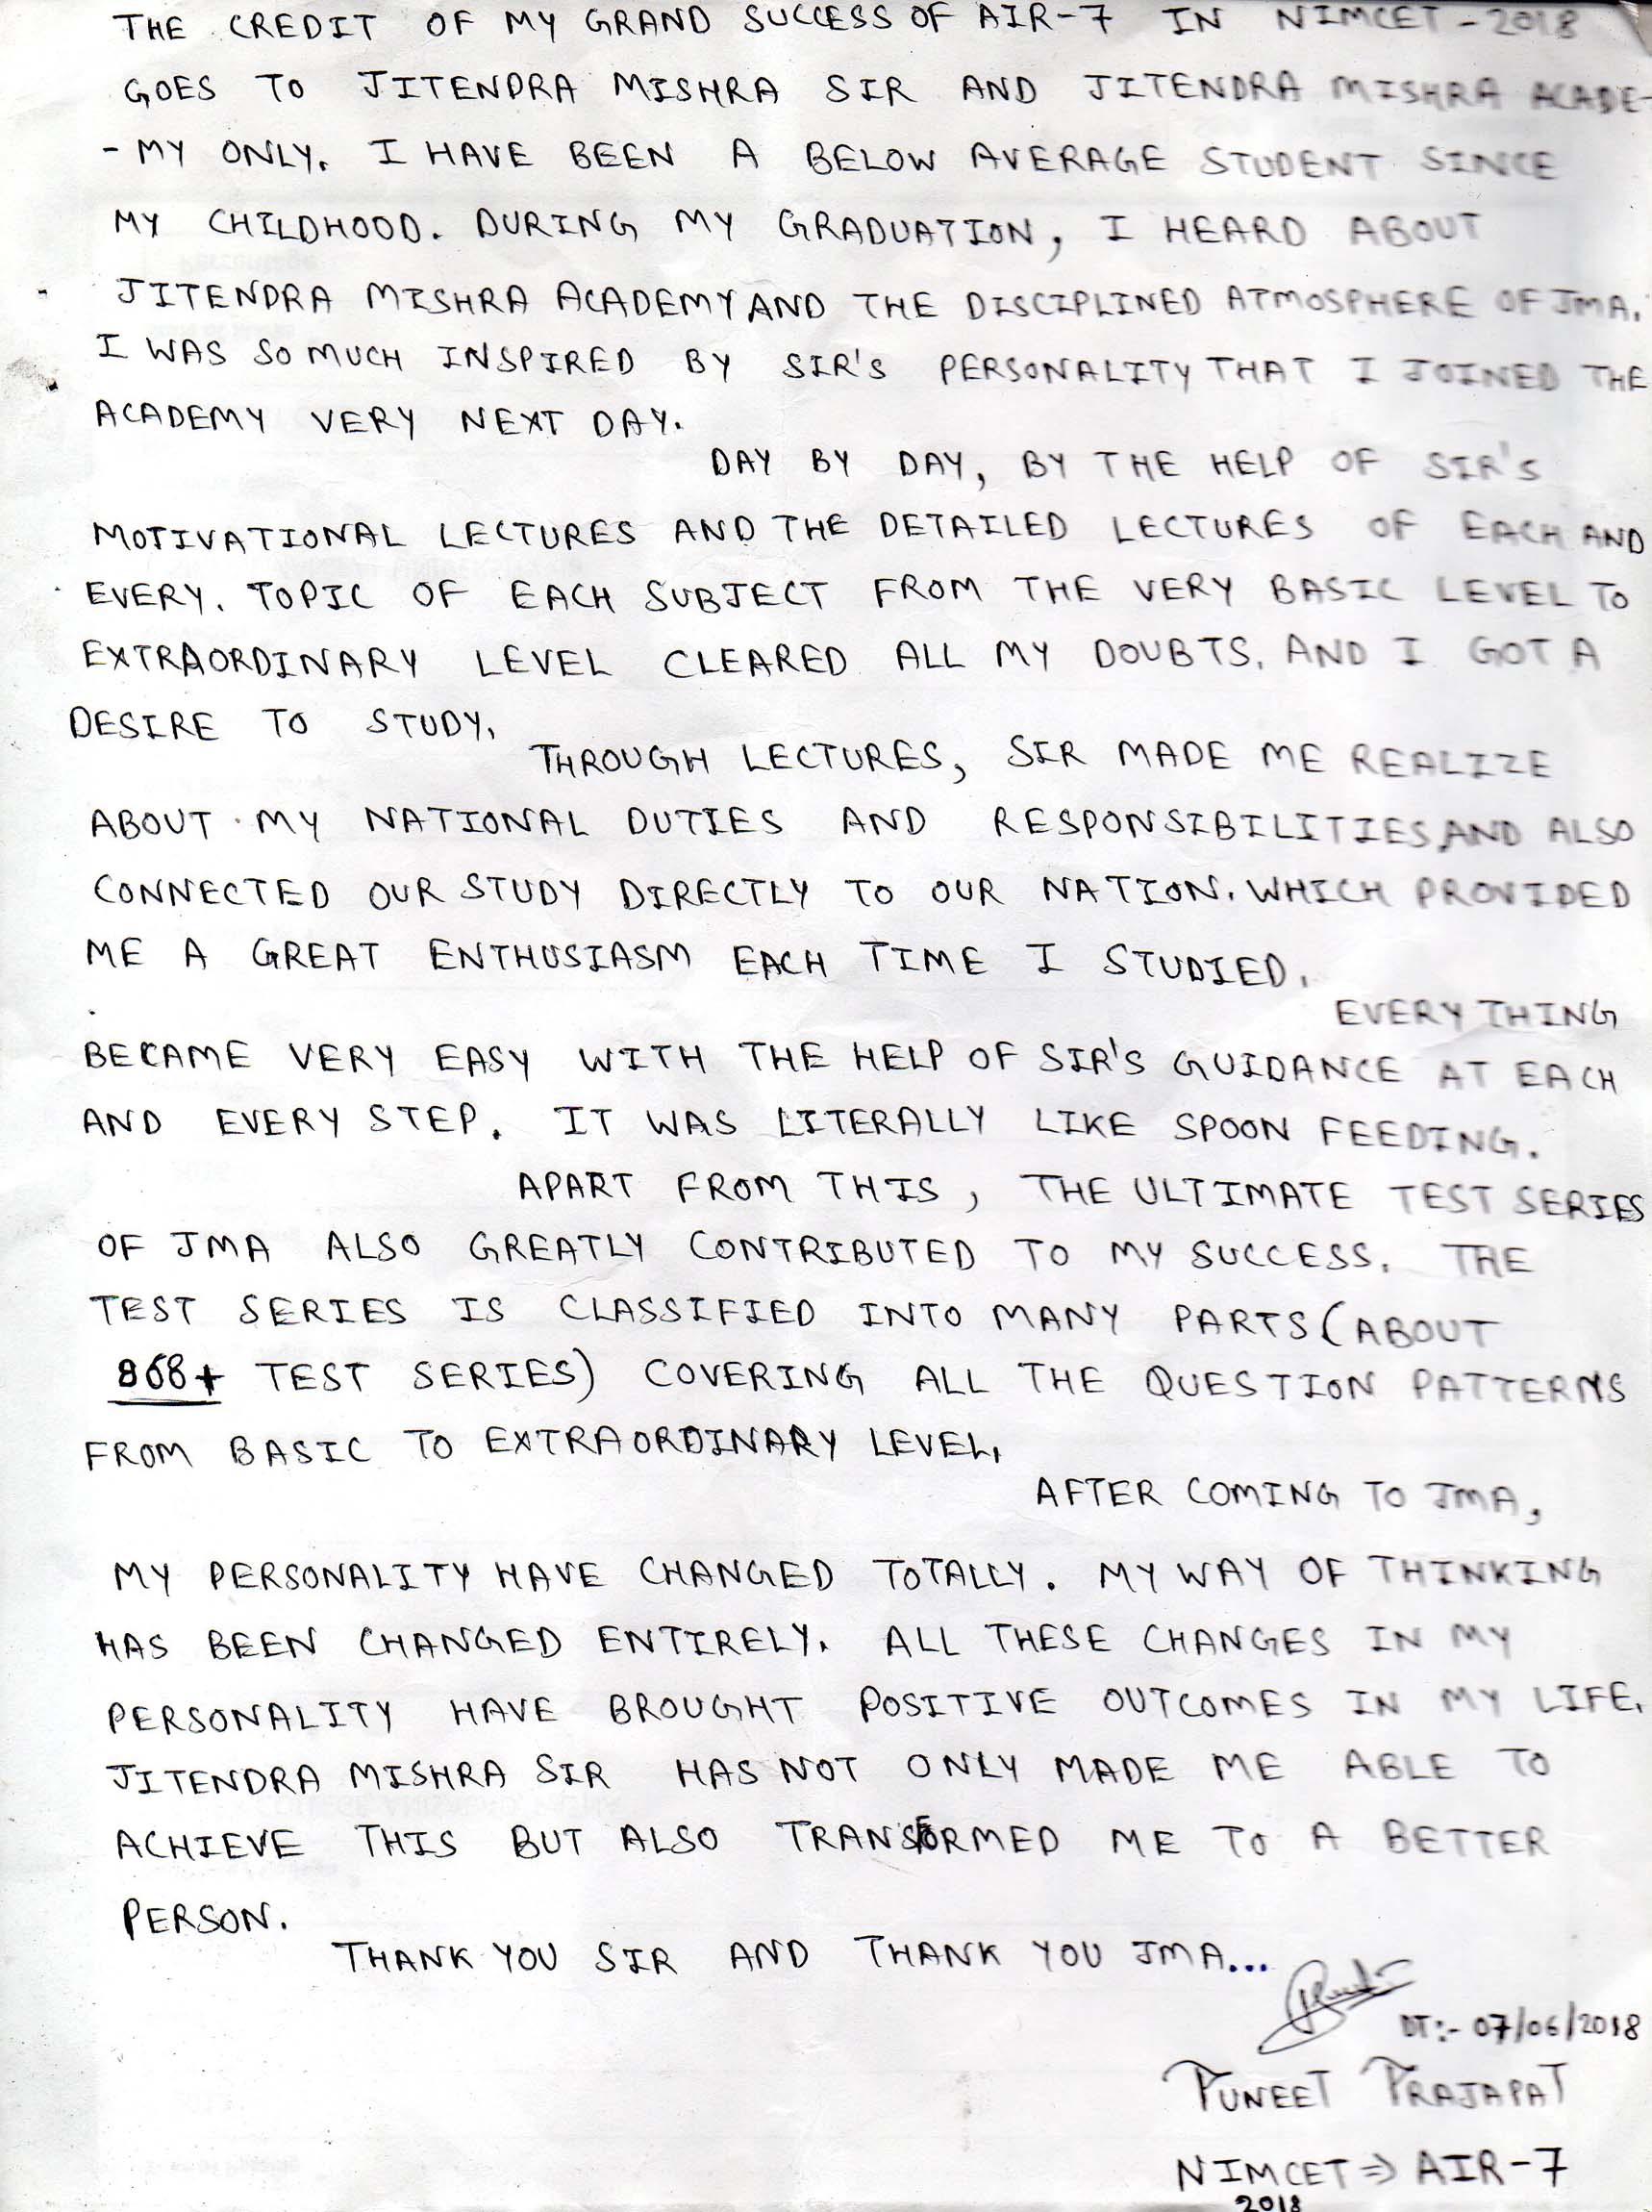 THE CREDIT OF MY GRAND SUCCESS OF AIR-7 IN NIMCET - 2018
GOES TO JITENDRA MISHRA SIR AND JITENDRA MISHRA ACADE-
- MY ONLY. I HAVE BEEN A BELOW AVERAGE STUDENT SINCE
MY CHILDHOOD. DURING MY GRADUATION, I HEARD ABOUT
JITENDRA MISHRA ACADEMY AND THE DISCIPLINED ATMOSPHERE OF JMA.
I WAS SO MUCH INSPIRED BY SIR'S PERSONALITY THAT I JOINED THE
ACADEMY VERY NEXT DAY.
DAY BY DAY, BY THE HELP OF SIR'S
MOTIVATIONAL LECTURES AND THE DETAILED LECTURES OF EACH AND
EVERY. TOPIC OF EACH SUBJECT FROM THE VERY BASIC LEVEL TO
EXTRAORDINARY LEVEL CLEARED ALL MY DOUBTS. AND I GOT A
DESIRE TO STUDY.
THROUGH LECTURES, SIR MADE ME REALIZE
ABOUT MY NATIONAL DUTIES AND RESPONSIBILITIES, AND ALSO
CONNECTED OUR STUDY DIRECTLY TO OUR NATION. WHICH PROVIDED
ME A GREAT ENTHUSIASM EACH TIME I STUDIED.
EVERY THING
BECAME VERY EASY WITH THE HELP OF SIR'S GUIDANCE AT EACH
AND EVERY STEP. IT WAS LITERALLY LIKE SPOON FEEDING.
APART FROM THIS, THE ULTIMATE TEST SERIES
OF JMA ALSO GREATLY CONTRIBUTED TO MY SUCCESS. THE
TEST SERIES IS CLASSIFIED INTO MANY PARTS (ABOUT
868+ TEST SERIES) COVERING ALL THE QUESTION PATTERNS
FROM BASIC TO EXTRAORDINARY LEVEL.
AFTER COMING TO JMA,
MY PERSONALITY HAVE CHANGED TOTALLY. MY WAY OF THINKING
HAS BEEN CHANGED ENTIRELY. ALL THESE CHANGES IN MY
PERSONALITY HAVE BROUGHT POSITIVE OUTCOMES IN MY LIFE.
JITENDRA MISHRA SIR HAS NOT ONLY MADE ME ABLE TO
ACHIEVE THIS BUT ALSO TRANSFORMED ME TO A BETTER
PERSON.
THANK YOU SIR AND THANK YOU JMA...
DT:- 07/06/2018
PUNEET PRAJAPAT
NIMCET => AIR-7
2018